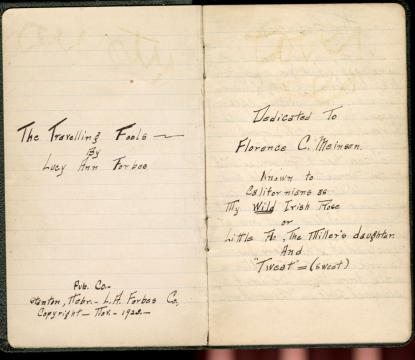 The Travelling Fools —
By
Lucy Ann Forbes
Pub. Co.-
Stanton, Nebr.- L.A. Forbes Co,
Copyright - Nov. - 1922.-
Dedicated To
Florence C. Meinsen.
Known to
Californians as
My Wild Irish Rose
or
Little Flo, The Miller's daughter.
And
"Tweet" = (sweet)